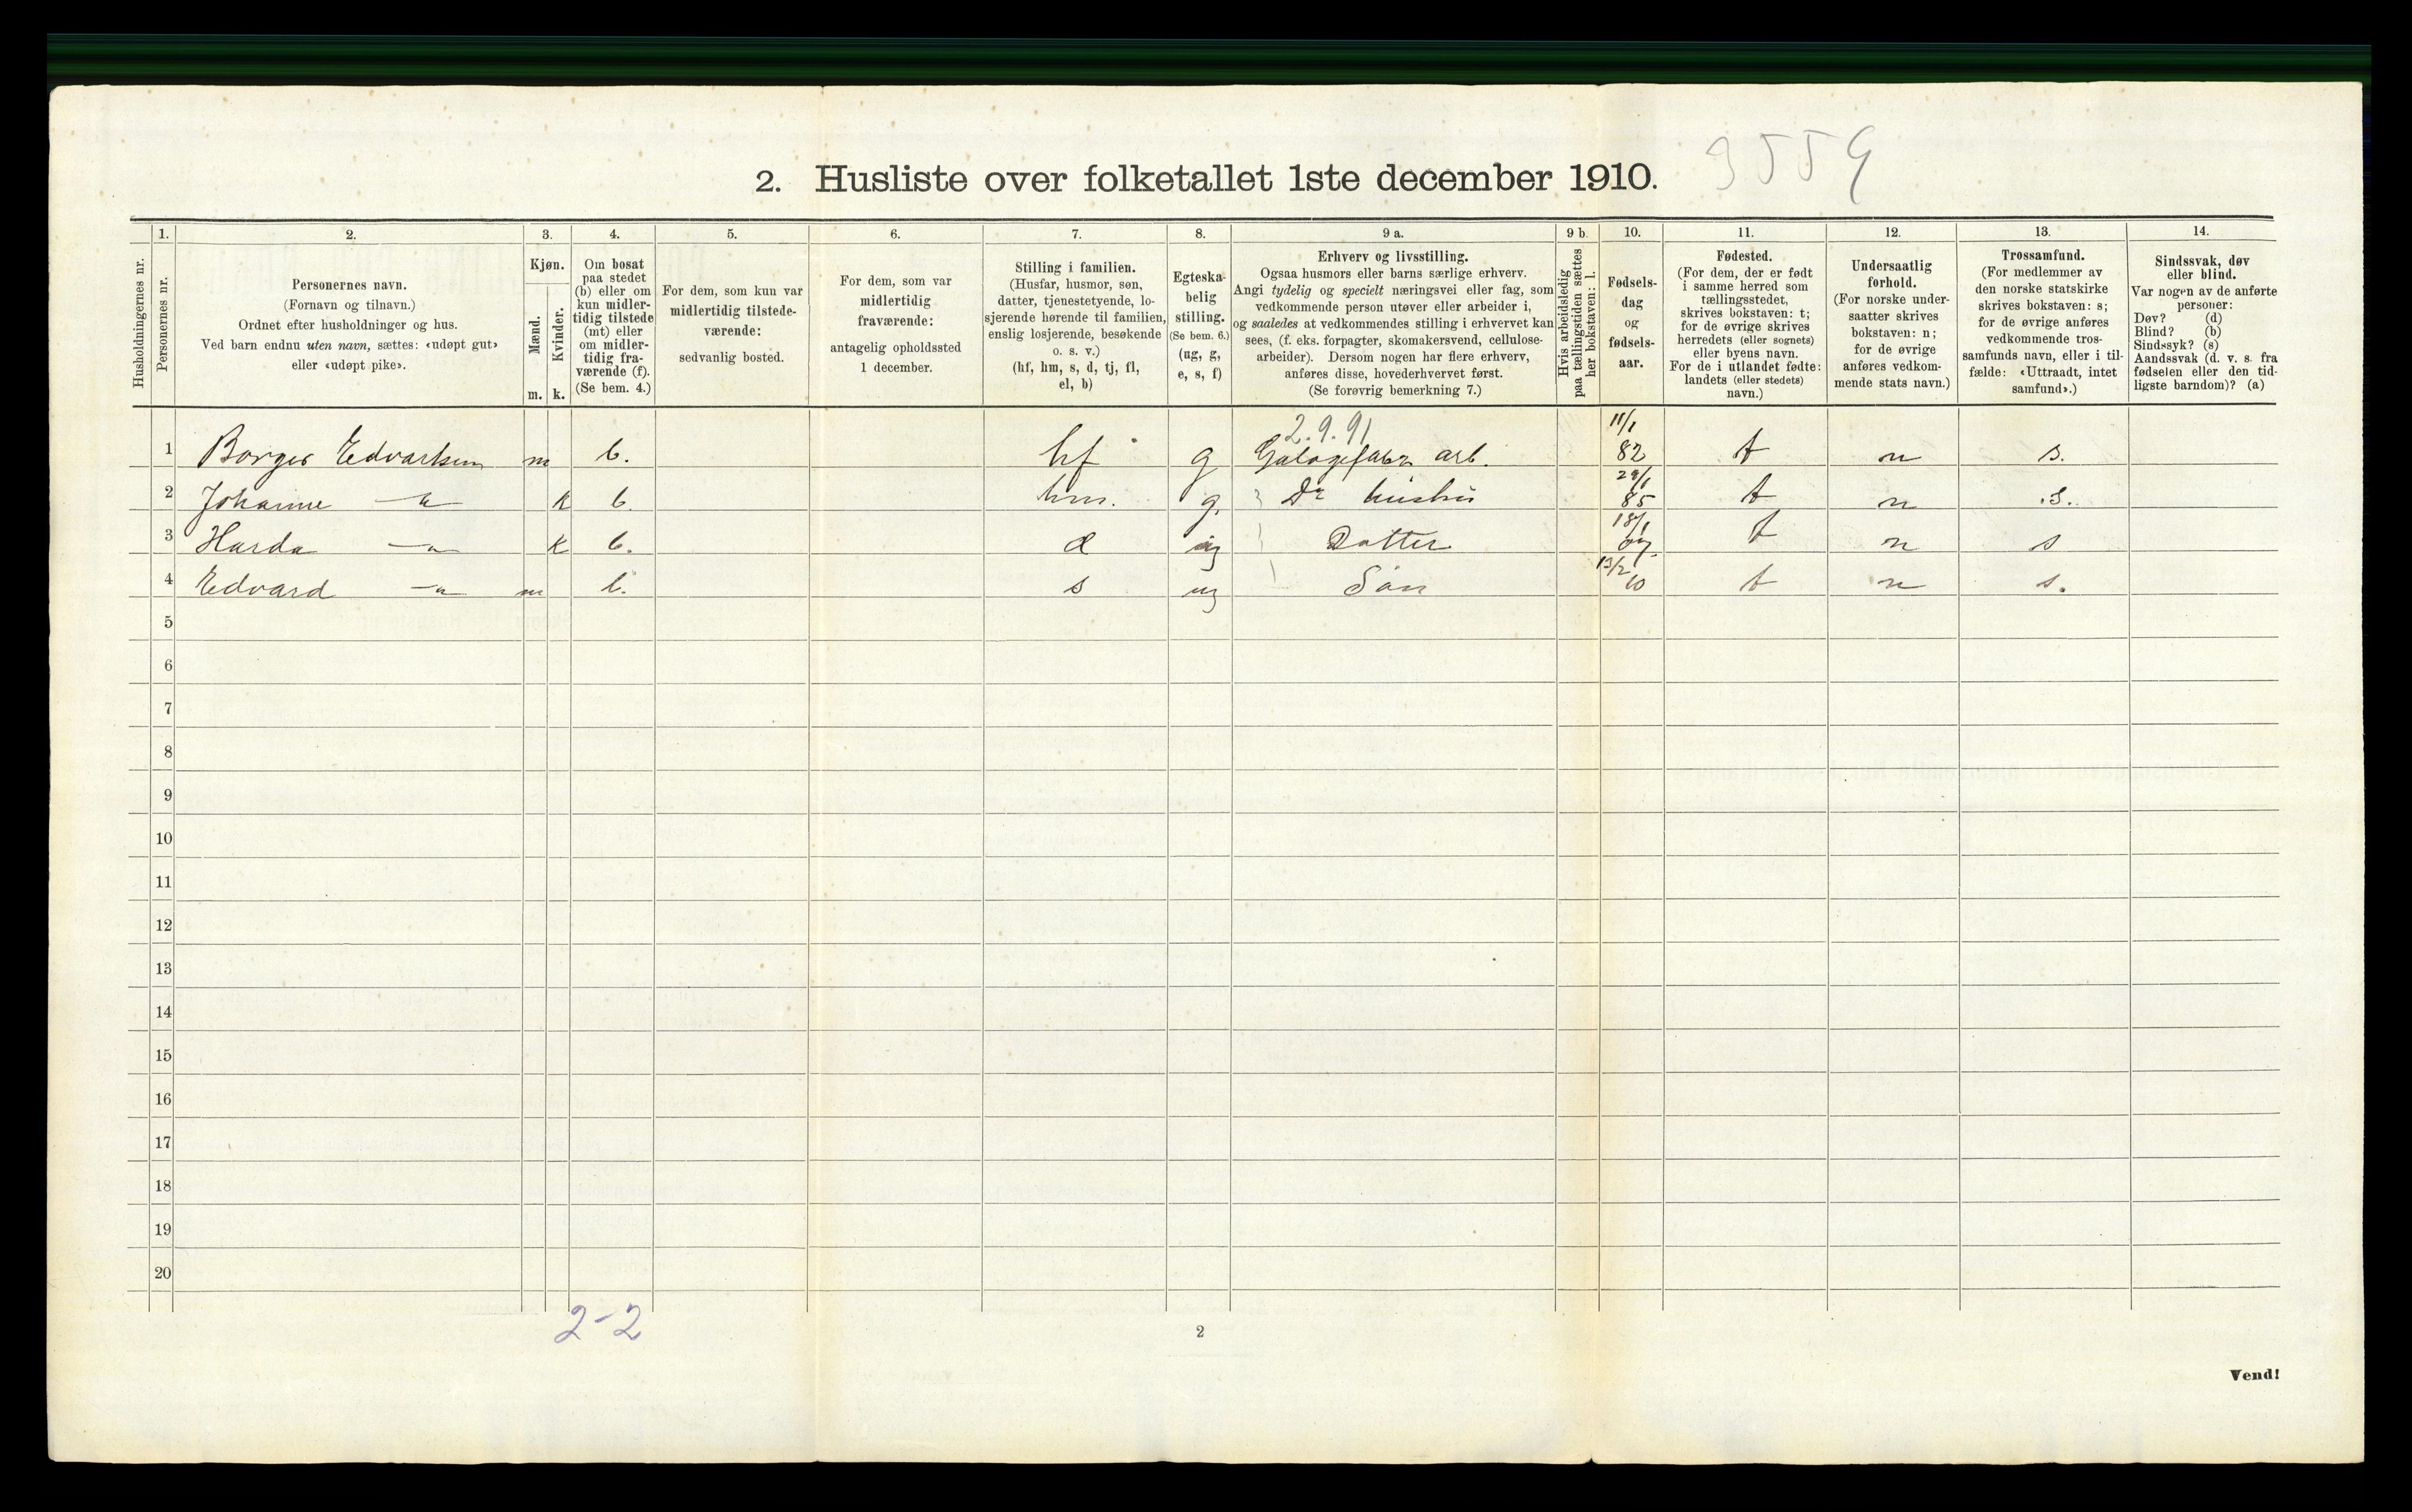 2. Husliste over folketallet 1ste december 1910. 3559
1. 2. 3. 4. 5. 6. 7. 8. 9 a. 9 b. 10. 11. 12. 13. 14.
Husholdningernes nr.
Personernes nr.
Personernes navn.
(Fornavn og tilnavn.)
Ordnet efter husholdninger og hus.
Ved barn endnu uten navn, sættes: «udøpt gut»
eller «udøpt pike».
Kjøn.
Mænd.
Kvinder.
m. k.
Om bosat
paa stedet
(b) eller om
kun midler-
tidig tilstede
(mt) eller
om midler-
tidig fra-
værende (f).
(Se bem. 4.)
For dem, som kun var
midlertidig tilstede-
værende:
sedvanlig bosted.
For dem, som var
midlertidig
fraværende:
antagelig opholdssted
1 december.
Stilling i familien.
(Husfar, husmor, søn,
datter, tjenestetyende, lo-
sjerende hørende til familien,
enslig losjerende, besøkende
o. s. v.)
(hf, hm, s, d, tj, fl,
el, b)
Egteska-
belig
stilling.
(Se bem. 6.)
(ug, g,
e, s, f)
Erhverv og livsstilling.
Ogsaa husmors eller barns særlige erhverv.
Angi tydelig og specielt næringsvei eller fag, som
vedkommende person utøver eller arbeider i,
og saaledes at vedkommendes stilling i erhvervet kan
sees, (f. eks. forpagter, skomakersvend, cellulose-
arbeider). Dersom nogen har flere erhverv,
anføres disse, hovederhvervet først.
(Se forøvrig bemerkning 7.)
Hvis arbeidsledig
paa tællingstiden sættes
her bokstaven: l.
Fødsels-
dag
og
fødsels-
aar.
Fødested.
(For dem, der er født
i samme herred som
tællingsstedet,
skrives bokstaven: t;
for de øvrige skrives
herredets (eller sognets)
eller byens navn.
For de i utlandet fødte:
landets (eller stedets)
navn.)
Undersaatlig
forhold.
(For norske under-
saatter skrives
bokstaven: n;
for de øvrige
anføres vedkom-
mende stats navn.)
Trossamfund.
(For medlemmer av
den norske statskirke
skrives bokstaven: s;
for de øvrige anføres
vedkommende tros-
samfunds navn, eller i til-
fælde: «Uttraadt, intet
samfund».)
Sindssvak, døv
eller blind.
Var nogen av de anførte
personer:
Døv? (d)
Blind? (b)
Sindssyk? (s)
Aandssvak (d. v. s. fra
fødselen eller den tid-
ligste barndom)? (a)
2.9.91
1 Borger Edvartsen m b. hf g Galogefabr arb. 11/1 82 t n s.
2 Johanne —"— k b. hm. g. Do hustru 29/1 85 t n s.
3 Harda —"— k b. d ug Datter 18/1 07. t n s
4 Edvard —"— m b. s ug Søn 13/2 10 t n s.
5
6
7
8
9
10
11
12
13
14
15
16
17
18
19
20
2-2
2
Vend!